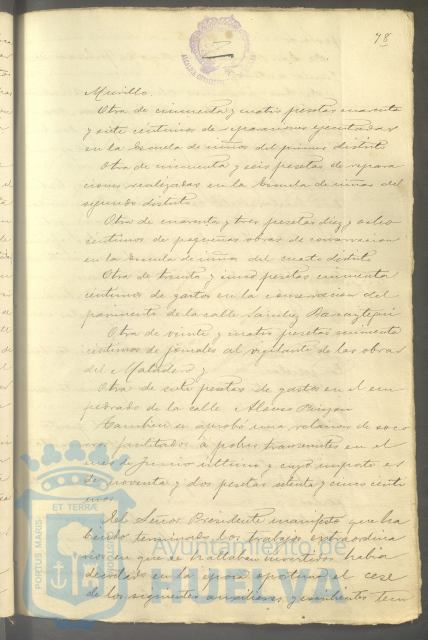 78
Murillo.
Otra de cincuenta y cuatro pesetas cuarenta
y siete centimos de reparaciones ejecutadas
en la Escuela de niños del primer distrito
Otra de cincuenta y seis pesetas de repara
ciones realizadas en la Escuela de niñas del
segundo distrito
Otra de cuarenta y tres pesetas diez y ocho
centimos de pequeñas obras de conservacion
en la Escuela de niños del cuarto distrito
Otra de treinta y cinco pesetas cincuenta
centimos de gastos en la conservacion del
pavimento de la calle Sanchez Barcaiztegui
Otra de veinte y cuatro pesetas
centimos de jornales al vigilante de las obras
del Matadero y
Otra de siete pesetas de gastos en el em
pedrado de la calle Alonso Pinzon
Tambien se aprobó una relacion de soco
rros facilitados à pobres transeuntes en el
mes de Junio ultimo y cuyo importe es
de noventa y dos pesetas setenta y cinco centi
mos
El Señor Presidente manifestó que ha
biendo terminado los trabajos extraordina
rios en que se hallaban invertidos habia
decretado en la epoca oportuna el cese
de los siguientes auxiliares y escribientes tem
PORTUS MARIS
ET TERRÆ
CUSTODIA
Ayuntamiento de
HUELVA